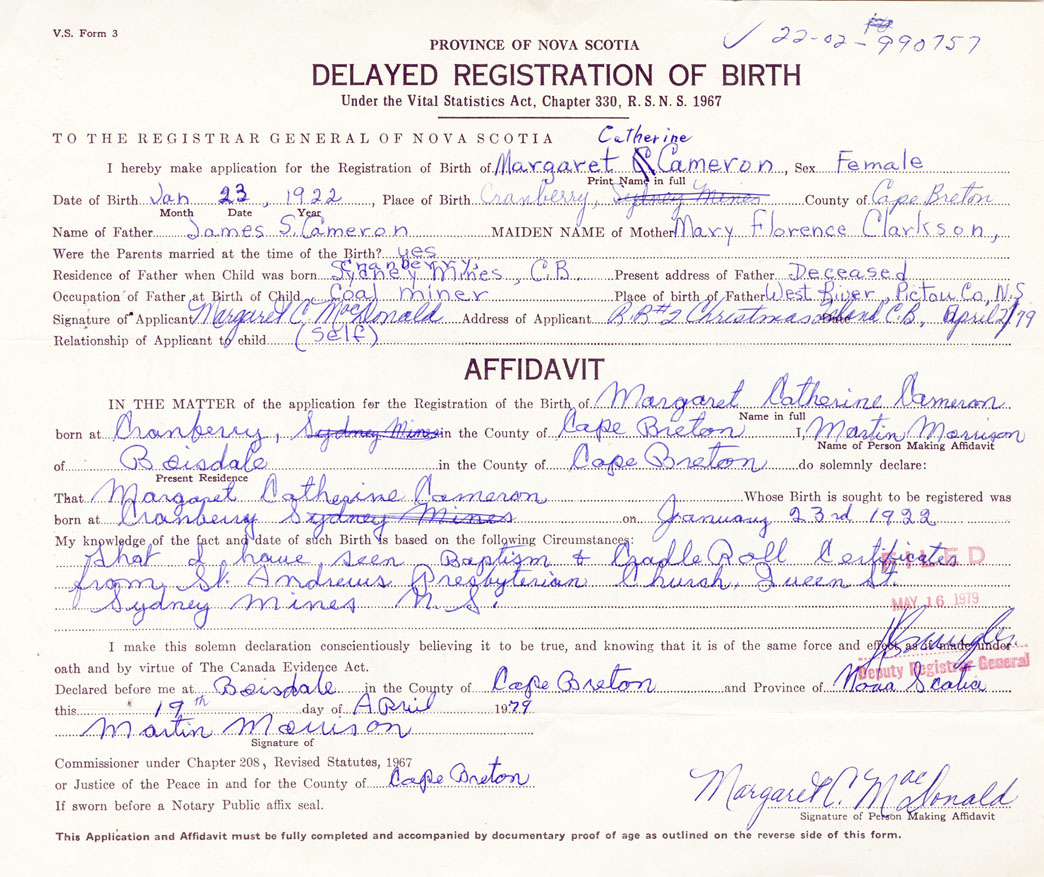 V.S. Form 3
✓ 22-02-990757
PROVINCE OF NOVA SCOTIA
DELAYED REGISTRATION OF BIRTH
Under the Vital Statistics Act, Chapter 330, R.S.N.S. 1967
TO THE REGISTRAR GENERAL OF NOVA SCOTIA
Catherine
I hereby make application for the Registration of Birth of Margaret C Cameron, Sex Female
Print Name in full
Date of Birth Jan 23, 1922, Place of Birth Cranberry, Sydney Mines County of Cape Breton
Month Date Year
Name of Father James S. Cameron MAIDEN NAME of Mother Mary Florence Clarkson,
Were the Parents married at the time of the Birth? yes
Cranberry,
Residence of Father when Child was born Sydney Mines, C.B. Present address of Father Deceased
Occupation of Father at Birth of Child Coal miner Place of birth of Father West River, Pictou Co, N.S
Signature of Applicant Margaret C. MacDonald Address of Applicant R.R#2 Christmas Island C.B., April 2/79
Relationship of Applicant to child (self)
AFFIDAVIT
IN THE MATTER of the application for the Registration of the Birth of Margaret Catherine Cameron
Name in full
born at Cranberry, Sydney Mines in the County of Cape Breton I, Martin Morrison
Name of Person Making Affidavit
of Boisdale in the County of Cape Breton do solemnly declare:
Present Residence
That Margaret Catherine Cameron Whose Birth is sought to be registered was
born at Cranberry Sydney Mines on January 23rd 1922
My knowledge of the fact and date of such Birth is based on the following Circumstances:
that I have seen Baptism & Cradle Roll Certificates
from St. Andrews Presbyterian Church, Queen St.
Sydney Mines N.S.
FILED
MAY 16 1979
I make this solemn declaration conscientiously believing it to be true, and knowing that it is of the same force and effect as if made under
oath and by virtue of The Canada Evidence Act.
Deputy Registrar General
Declared before me at Boisdale in the County of Cape Breton and Province of Nova Scotia
this 19th day of April 1979
Martin Morrison
Signature of
Commissioner under Chapter 208, Revised Statutes, 1967
or Justice of the Peace in and for the County of Cape Breton
If sworn before a Notary Public affix seal.
Margaret C. MacDonald
Signature of Person Making Affidavit
This Application and Affidavit must be fully completed and accompanied by documentary proof of age as outlined on the reverse side of this form.